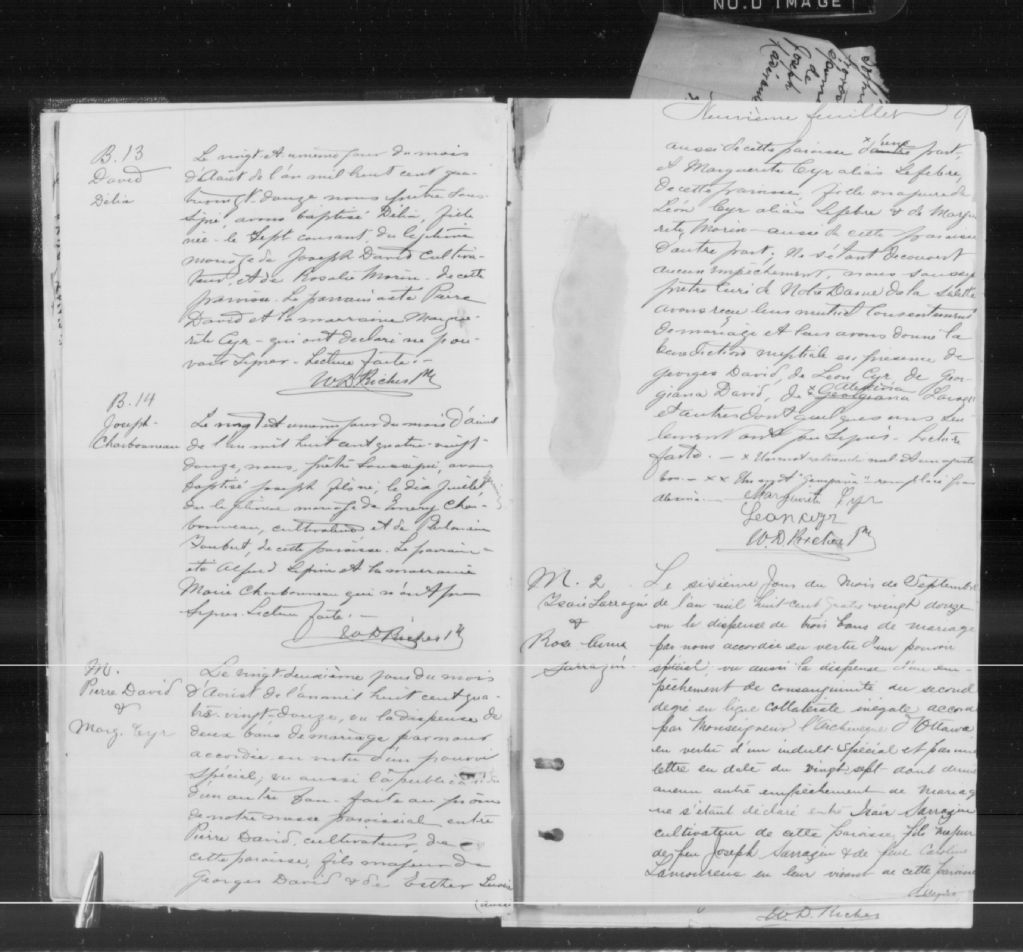 NO.D IMAGE
B. 13
David
Délia
Le vingt et unième jour du mois
d'Août de l'an mil huit cent qua-
trevingt-douze nous prêtre sous-
signé, avons baptisé Délia, fille
née le sept courant, du légitime
mariage de Joseph David cultiva-
teur, et de Rosalie Morin de cette
paroisse. Le parrain a été Pierre
David et la marraine Margue-
rite Cyr - qui ont déclaré ne pou-
voir signer. Lecture faite. -
W. D. Richer Ptre
B. 14
Joseph
Charbonneau
Le vingt et unième jour du mois d'août
de l'an mil huit cent quatre-vingt-
douze, nous, prêtre soussigné, avons
baptisé Joseph, fils né, le dix juillet
du légitime mariage de Emery Char-
bonneau, cultivateur et de
Joubert, de cette paroisse. Le parrain a
été Alfred Lépine et la marraine
Marie Charbonneau qui n'ont pu
signer. Lecture faite. -
W. D. Richer Ptre
M.
Pierre David
&
Marg. Cyr
Le vingt deuxième jour du mois
d'Août de l'an mil huit cent qua-
tre-vingt-douze, vu la dispense de
deux bans de mariage par nous
accordée en vertu d'un pouvoir
spécial; vu aussi la publication
d'un autre ban faite au prône
de notre messe paroissiale entre
Pierre David, cultivateur, de
cette paroisse, fils majeur de
Georges David & de Esther
Neuvième feuillet 9
aussi de cette paroisse x d'une part,
& Marguerite Cyr alias Lefebre,
de cette paroisse, fille majeure de
Léon Cyr alias Lefebre & de Margue-
rite Morin aussi de cette paroisse
d'autre part; Ne s'étant découvert
aucun empêchement, nous soussigné
prêtre curé de Notre Dame de la Salette
avons reçu leur mutuel consentement
de mariage et leur avons donné la
bénédiction nuptiale en présence de
Georges David, de Léon Cyr de Geor-
giana David, de x Georgiana
et autres dont quelques uns seu-
lement ont pu signer. Lecture
faite. -
Marguerite Cyr
Leon Cyr
W. D. Richer Ptre
M. 2
Isaïe Sarrazin
&
Rose Anna
Sarrazin
Le sixième jour du mois de Septembre
de l'an mil huit cent quatre vingt douze
vu la dispense de trois bans de mariage
par nous accordée en vertu d'un pouvoir
spécial, vu aussi la dispense d'un em-
pêchement de consanguinité du second
degré en ligne collatérale inégale accord
par Monseigneur l'Archevêque d'Ottawa
en vertu d'un indult spécial et par une
lettre en date du vingt sept
aucun autre empêchement de mariage
ne s'étant déclaré entre Isaïe Sarrazin
cultivateur de cette paroisse, fils majeur
de feu Joseph Sarrazin & de feue Caroline
Lamoureux en leur vivant de cette paroisse
W. D. Richer